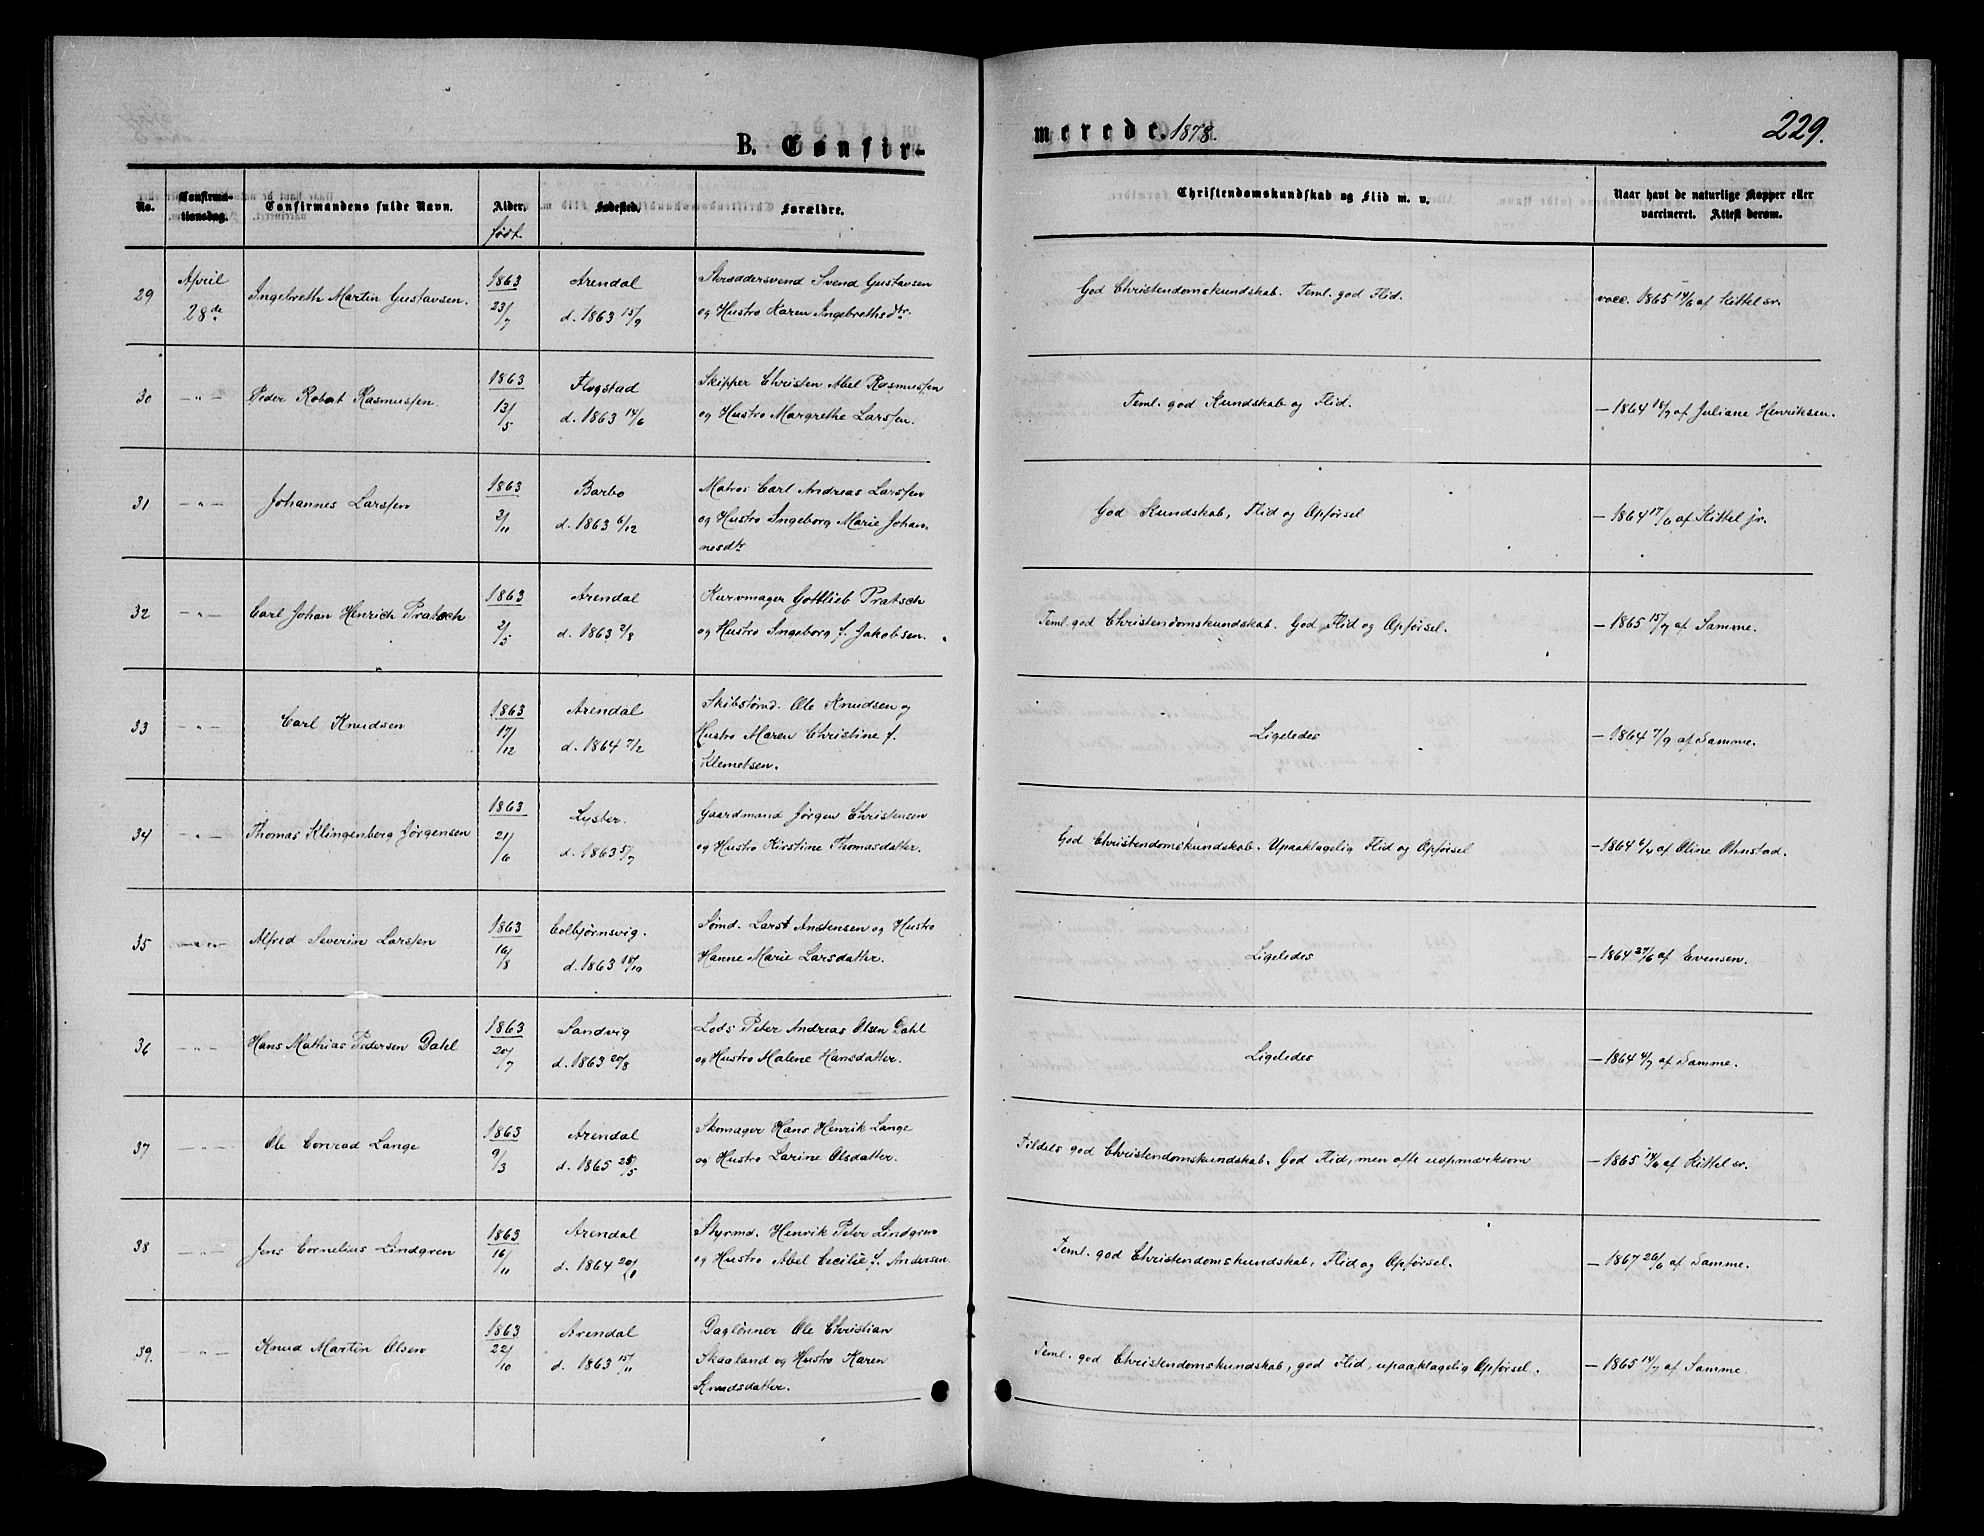 B. Confir-
merede. 1878.
229.
No.
Confirma-
tionsdag.
Confirmandens fulde Navn.
Alder.
født
Fødested.
Forældre.
Christendomskundskab og Flid m. v.
Naar havt de naturlige Kopper eller
vaccineret. Attest derom.
29 April 28de Ingebreth Martin Gustavsen. 1863 23/7 Arendal d. 1863 13/9
Skræddersvend Svend Gustavsen
og Hustro Karen Ingebrethsdtr.
God Christendomskundskab. Teml. god Flid.
vacc. 1865 14/6 af Kittel sr.
30 —"— Peder Robert Rasmussen. 1863 13/5 Flagstad d. 1863 14/6
Skipper Christen Abel Rasmussen
og Hustro Margrethe Larssen.
Teml. god Kundskab og Flid.
— 1864 18/7 af Juliane Henriksen.
31 —"— Johannes Larssen 1863 2/11 Barbo d. 1863 6/12
Matros Carl Andreas Larssen
og Hustro Ingeborg Marie Johan
nesdtr
God Kundskab, Flid og Opførsel
— 1864 17/6 af Kittel jr.
32 —"— Carl Johan Henrich Pratsch 1863 2/5 Arendal d. 1863 2/8
Kurvmager Gottlieb Pratsch
og Hustro Ingeborg f. Jakobsen.
Teml. god Christendomskundskab. God Flid og Opførsel.
— 1865 15/7 af Samme.
33 —"— Carl Knudsen 1863 17/12 Arendal d. 1864 7/2
Skibstømd. Ole Knudsen og
Hustro Maren Christine f.
Klemetsen.
Ligeledes
— 1864 7/9 af Samme.
34 —"— Thomas Klingenberg Jørgensen 1863 21/6 Lyster. d. 1863 5/7
Gaardmand Jørgen Christensen
og Hustro Kirstine Thomasdatter.
God Christendomskundskab. Upaaklagelig Flid og Opførsel
— 1864 6/7 af Oline Ohnstad.
35 —"— Alfred Severin Larssen 1863 16/8 Colbjørnsvig. d. 1863 18/10
Sømd. Lars Anstensen og Hustro
Hanne Marie Larsdatter.
Ligeledes
— 1864 27/6 af Evensen.
36 —"— Hans Mathias Pedersen Dahl 1863 20/7 Sandvig d. 1863 20/8
Lods Peter Andreas Olsen Dahl
og Hustro Malene Hansdatter.
Ligeledes
— 1864 4/7 af Samme.
37 —"— Ole Conrad Lange 1863 9/3 Arendal d. 1865 25/5
Skomager Hans Henrik Lange
og Hustro Larine Olsdatter.
Tildels god Christendomskundskab. God Flid, men ofte uopmærksom
— 1865 14/6 af Kittel sr.
38 —"— Jens Cornelius Lindgren 1863 16/11 Arendal d. 1864
Styrmd. Henrik Peter Lindgren
og Hustro Abel Cecilie f. Andersen.
Teml. god Christendomskundskab, Flid og Opførsel.
— 1867 26/6 af Samme.
39. —"— Knud Martin Olsen 1863 22/10 Arendal d. 1863 15/11
Daglønner Ole Christian
Skaaland og Hustro Karen
Knudsdatter.
Teml. god Christendomskundskab, god Flid, upaaklagelig Opførsel.
— 1865 14/7 af Samme.